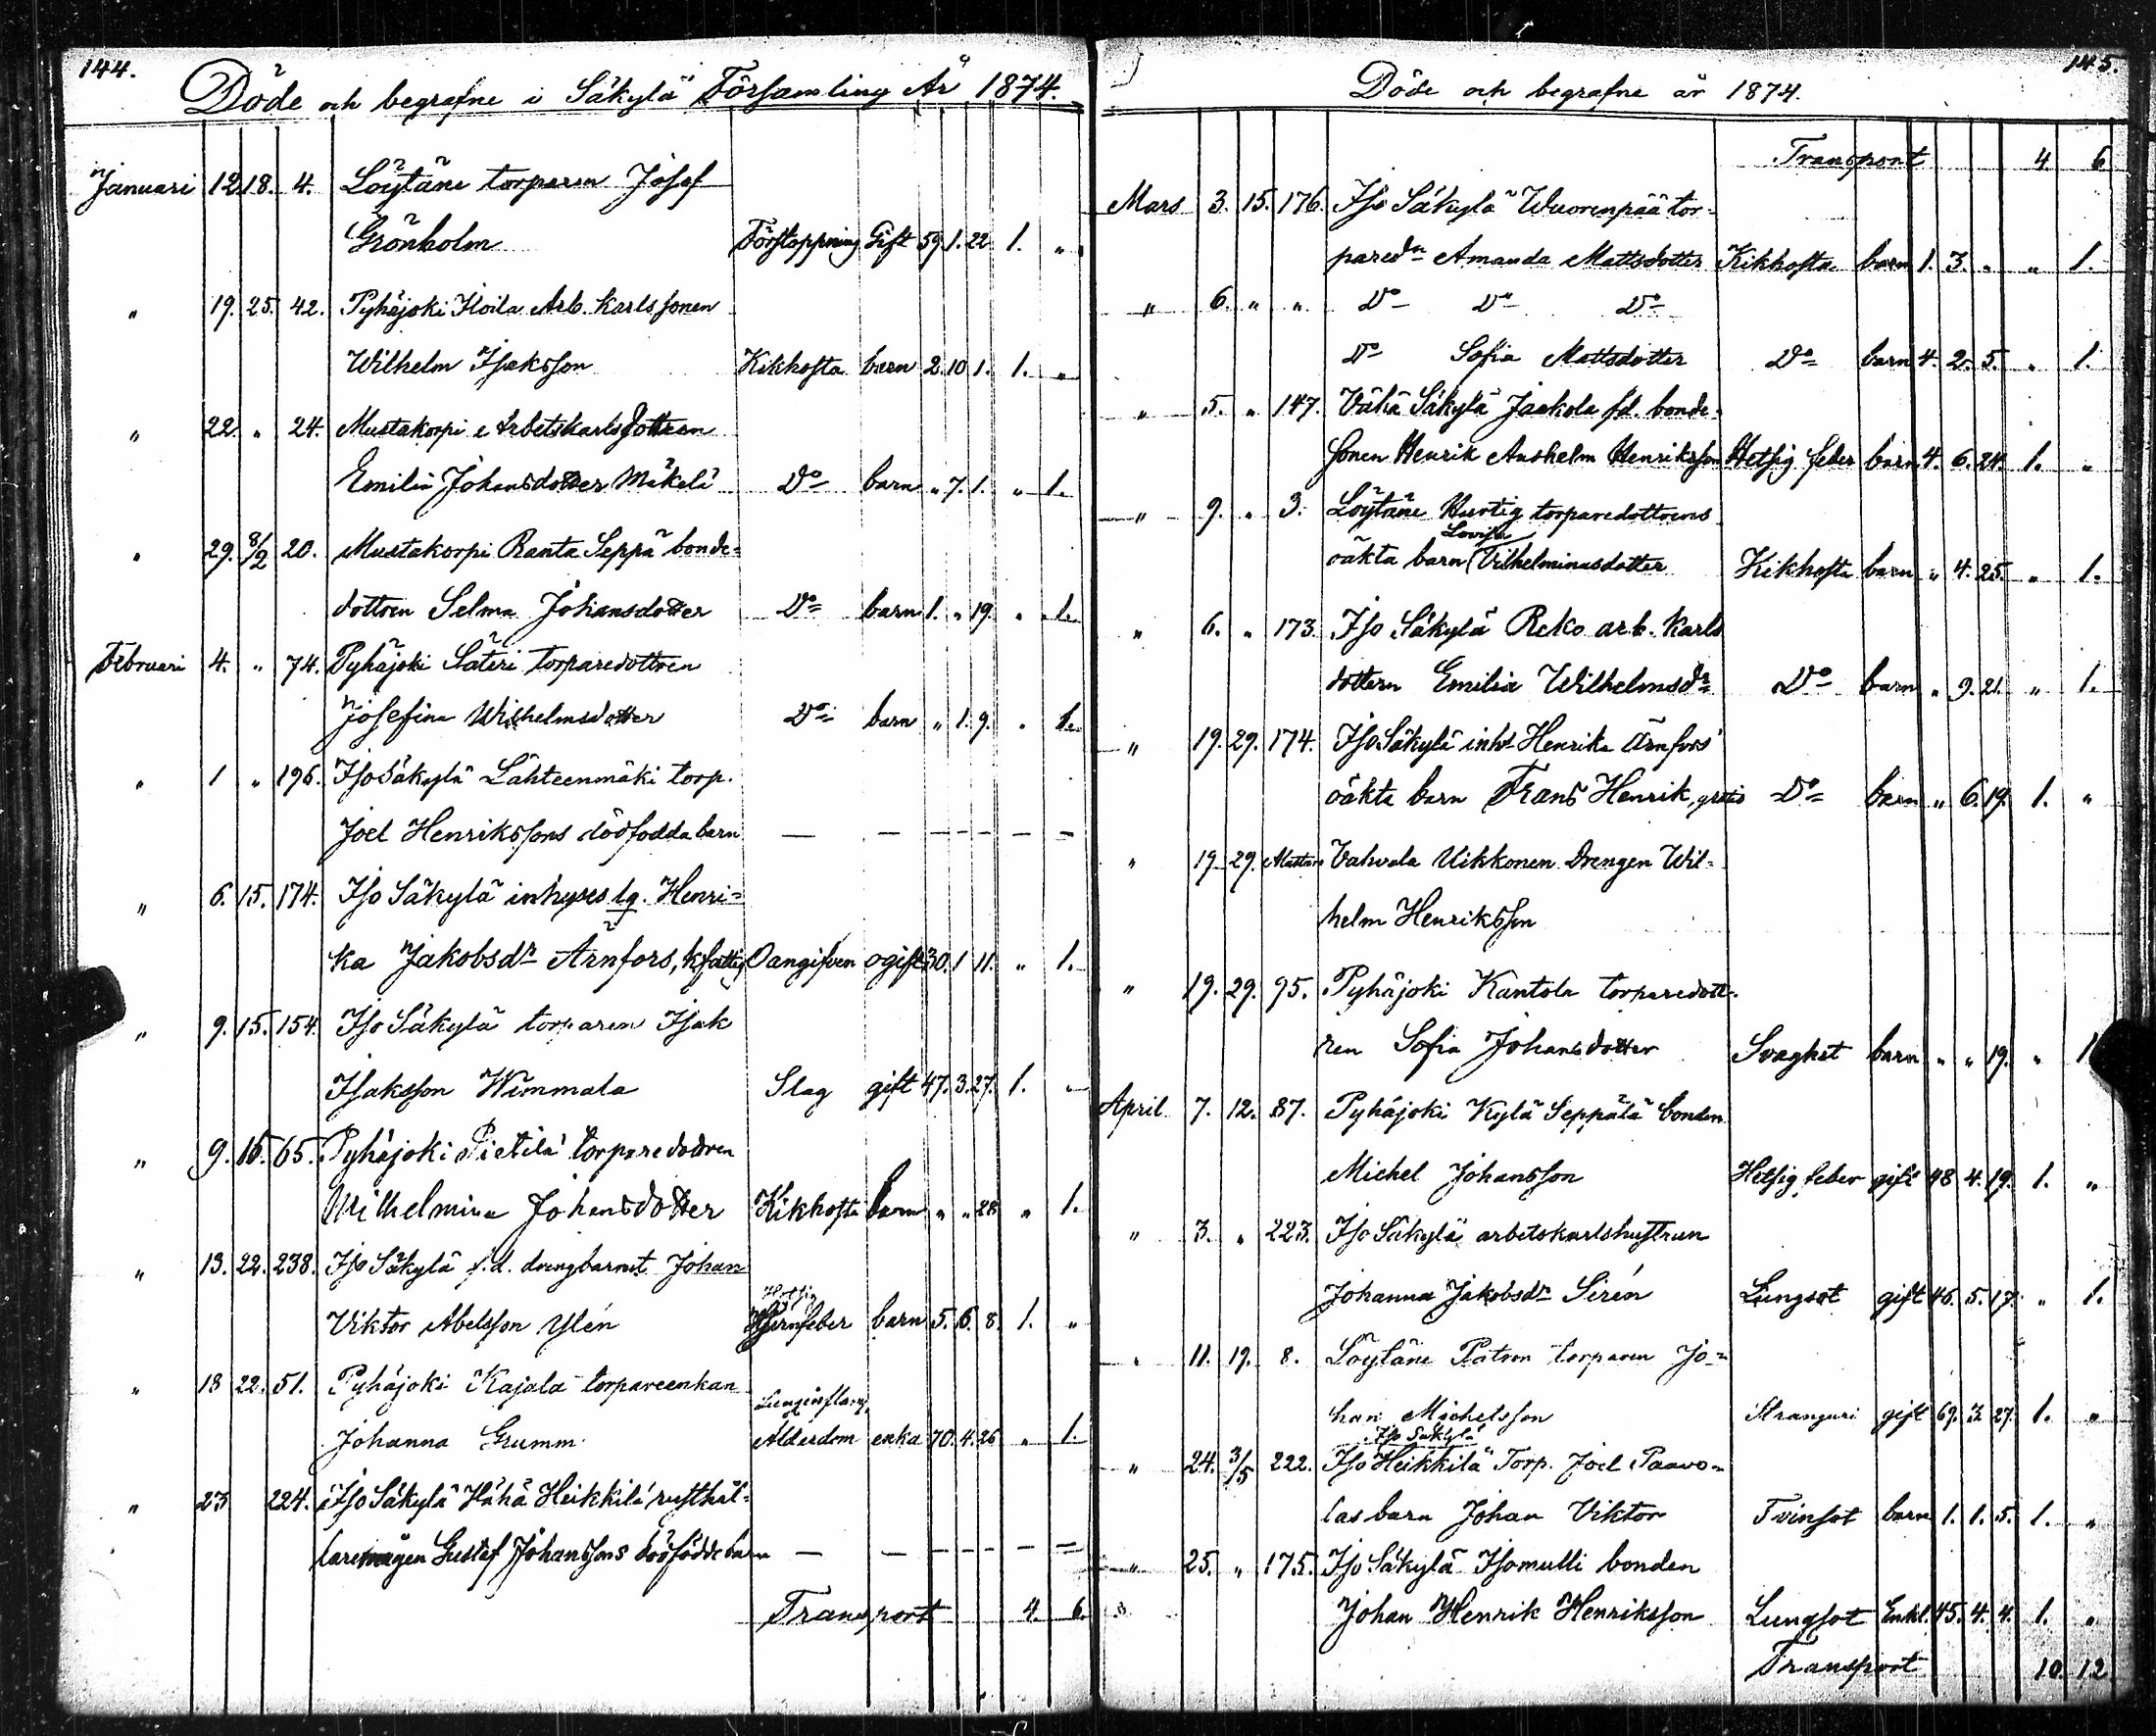 144.
Döde och begrafne i Säkylä Församling År 1874.
Januari 12. 18. 4. Löytäne torparen Josef
Grönholm Förstoppning Gift 59. 1. 22. 1. "
" 19. 25. 42. Pyhäjoki Iloila Arb. karls sonen
Wilhelm Isaksson Kikhosta barn 2. 10 1. 1. "
" 22. " 24. Mustakorpi Arbetskarls dottren
Emilia Johansdotter Mäkelä Do barn " 7. 1. " 1.
" 29. 8/2 20. Mustakorpi Ranta Seppä bonde-
dottren Selma Johansdotter Do barn 1. " 19. " 1.
Februari 4. " 74. Pyhäjoki Säteri torparedottren
Josefina Wilhelmsdotter Do barn " 1. 9. " 1.
" 1 " 196. Iso Säkylä Lähteenmäki torp.
Joel Henrikssons dödfödda barn — — — — — — —
" 6. 15. 174. Iso Säkylä inhyses lg. Henri=
ka Jakobsdr Ärnfors, kfattig Oangifven ogift 30. 1 11. " 1.
" 9. 15. 154. Iso Säkylä torparen Isak
Isaksson Wimmala Slag gift 47. 3. 27. 1. "
" 9. 15. 65. Pyhäjoki Pietilä torparedottren
Wilhelmina Johansdotter Kikhosta barn " " 28 " 1.
" 13. 22. 238. Iso Säkylä f.d. drengbarnet Johan
Hetsig
Viktor Abelsson Ylén Hjernfeber barn 5. 6. 8. 1. "
" 18 22. 51. Pyhäjoki Kajala torpareenkan
Lunginflam.
Johanna Grumm Alderdom enka 70. 4. 26 " 1.
" 23 224. Iso Säkylä Heikkilä rusthål-
laremågen Gustaf Johanssons dödfödde barn — — — — — —
Transport 4. 6.
145.
Döde och begrafne år 1874.
Transport 4 6
Mars 3. 15. 176. Iso Säkylä Wuorenpää tor-
paredn Amanda Mattsdotter Kikhosta barn 1. 3. " " 1.
" 6. " " Do Do Do
Do Sofia Mattsdotter Do barn 4. 2. 5. " 1.
" 5. " 147. Vähä Säkylä Jaakola fd. bonde-
sonen Henrik Anshelm Henriksson Hetsig feber barn 4. 6. 24. 1. "
" 9. " 3. Löytäne Hurtig torparedottrens
Lovisa
oäkta barn Vilhelminasdotter Kikhosta barn " 4. 25. " 1.
" 6. " 173. Iso Säkylä Reko arb. karls
dottern Emilia Wilhelmsdr Do barn " 9. 21. " 1.
" 19. 29. 174. Iso Säkylä inhs Henrika Ärnfors'
oäkta barn Frans Henrik, gratis Do barn " 6. 19. 1. "
" 19. 29. Vahvala Uikkonen Drengen Wil-
helm Henriksson
" 19. 29. 95. Pyhäjoki Kantola torparedott-
ren Sofia Johansdotter Svaghet barn " " 19. " 1
April 7. 12. 87. Pyhäjoki Kylä Seppälä bonden
Michel Johansson Hetsig feber gift 48 4. 19. 1. "
" 3. " 223. Iso Säkylä arbetskarlshustrun
Johanna Jakobsdr Sirén Lungsot gift 46. 5. 17. " 1.
" 11. 19. 8. Löytäne Patron torparen Jo-
han Michelsson Stranguri gift 69. 3. 27. 1. "
Iso Säkylä
" 24. 3/5 222. Iso Heikkilä Torp. Joel Paavo-
las barn Johan Viktor Tvinsot barn 1. 1. 5. 1. "
" 25. " 175. Iso Säkylä Isomulli bonden
Johan Henrik Henriksson Lungsot Enkl. 45. 4. 4. 1. "
Transport 10. 12